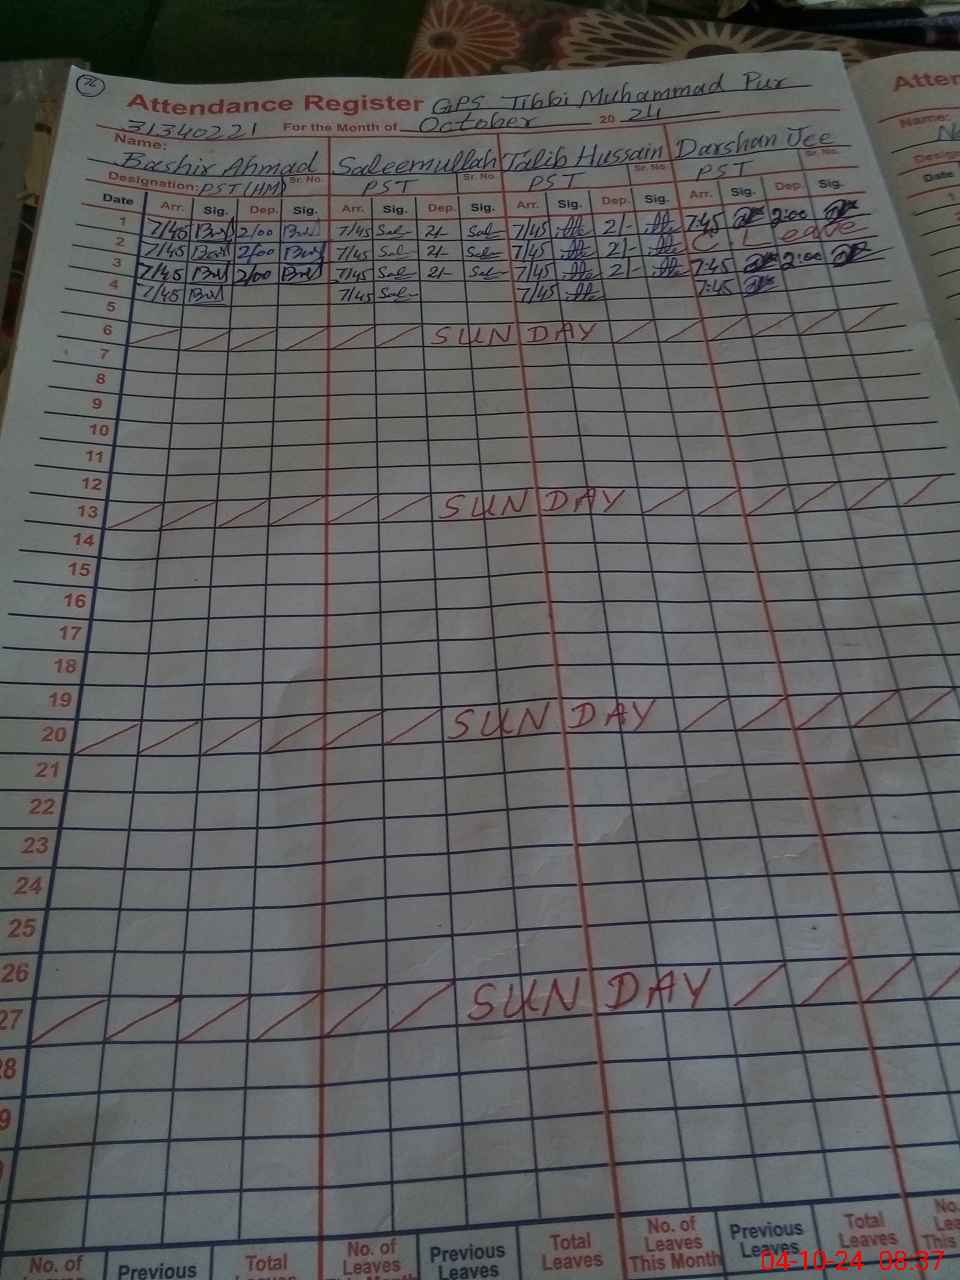 76
Attendance Register GPS Tibbi Muhammad Pur
31340221 For the Month of October 20 24
Name: Bashir Ahmad Saleemullah Talib Hussain Darshan Jee
Designation: PST (HM) Sr. No. PST Sr. No. PST Sr. No. PST Sr. No.
Date Arr. Sig. Dep. Sig. Arr. Sig. Dep. Sig. Arr. Sig. Dep. Sig. Arr. Sig. Dep. Sig.
1 7/45 2/00 7/45 Sal 2/- Sal 7/45 2/- 7:45 2:00
2 7/45 2/00 7/45 Sal 2/- Sal 7/45 2/- C Leave
3 7/45 2/00 7/45 Sal 2/- Sal 7/45 2/- 7:45 2:00
4 7/45 7/45 Sal 7/45 7:45
5
6 SUNDAY
7
8
9
10
11
12
13 SUNDAY
14
15
16
17
18
19
20 SUNDAY
21
22
23
24
25
26
27 SUNDAY
28
9
No. of Leaves Previous Total Leaves No. of Leaves This Month Previous Leaves Total Leaves No. of Leaves This Month Previous Leaves Total Leaves No. Lea This
04-10-24 08:37
Atten
Name:
Desig
Date